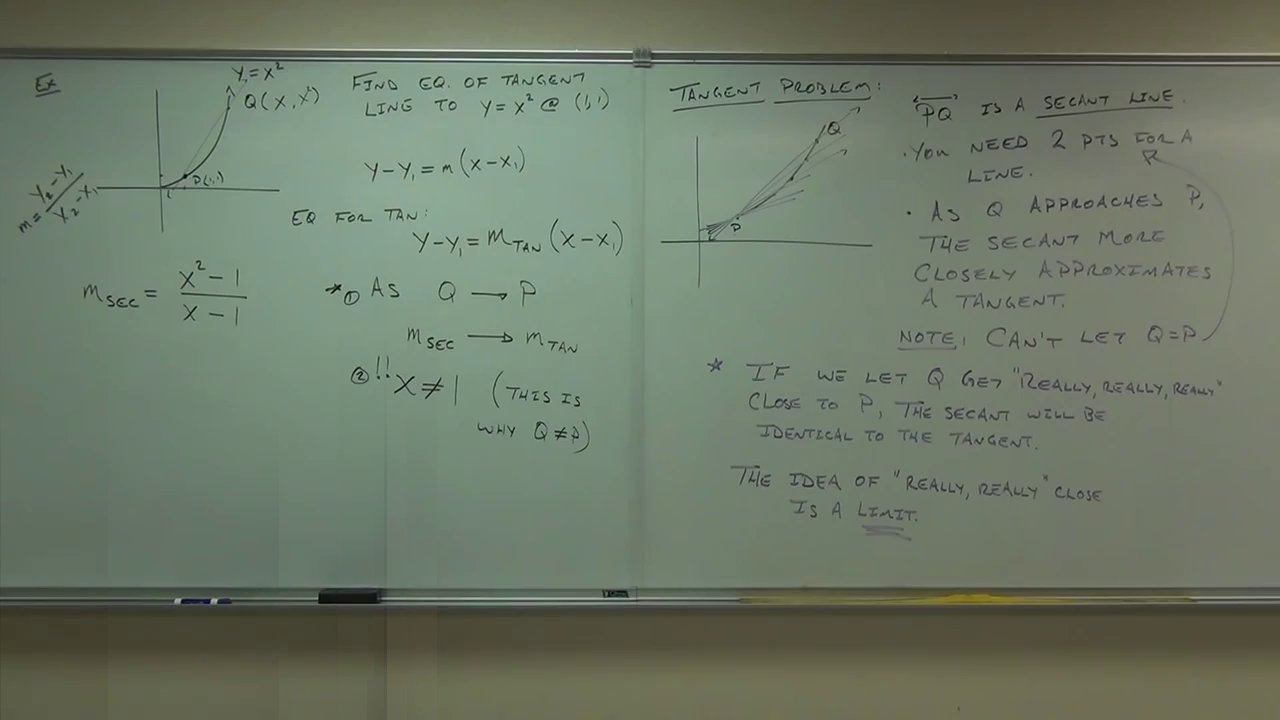 Ex
Y=X²
Q(X, X²)
P(1,1)
m = Y₂-Y₁/X₂-X₁
m SEC = X²-1/X-1
FIND EQ. OF TANGENT
LINE TO Y=X² @ (1,1)
Y-Y₁=m(X-X₁)
EQ FOR TAN:
Y-Y₁=m TAN (X-X₁)
* ① AS Q → P
m SEC → m TAN
② !! X≠1 (THIS IS
WHY Q≠P)
TANGENT PROBLEM:
Q
P
"PQ" IS A SECANT LINE.
· YOU NEED 2 PTS FOR A
LINE.
· AS Q APPROACHES P,
THE SECANT MORE
CLOSELY APPROXIMATES
A TANGENT.
NOTE: CAN'T LET Q=P
* IF WE LET Q GET "REALLY, REALLY, REALLY"
CLOSE TO P, THE SECANT WILL BE
IDENTICAL TO THE TANGENT.
THE IDEA OF "REALLY, REALLY" CLOSE
IS A LIMIT.